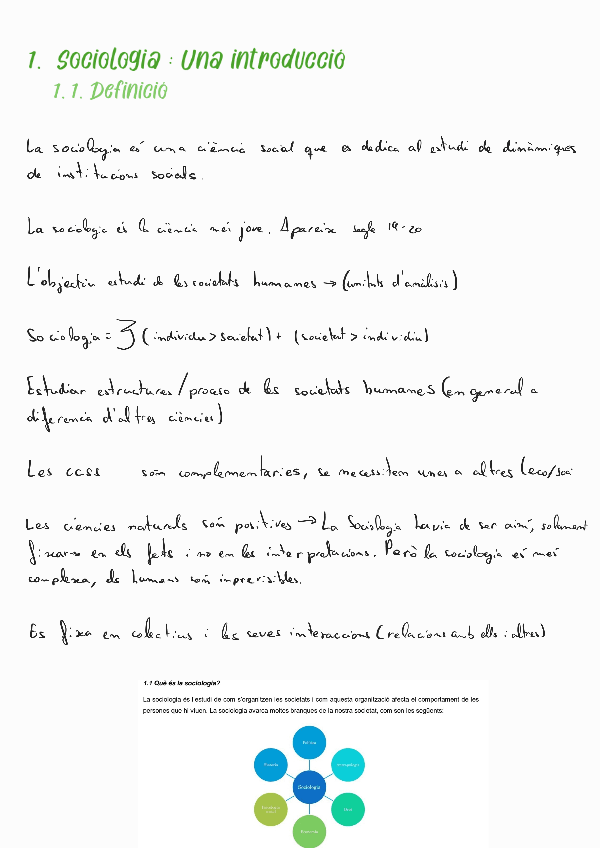 1. Sociologia : Una introducció
1.1. Definició
La sociologia és una ciència social que es dedica al estudi de dinàmiques
de institucions socials.
La sociologia és la ciència més jove. Apareix segle 19-20
L'objectiu estudi de les societats humanes → (unitats d'anàlisis)
Sociologia = (individu > societat) + (societat > individiu)
Estudiar estructures/proceso de les societats humanes (en general a
diferencia d'altres ciències)
Les ccss són complementaries, se necessiten unes a altres (eco/soci
Les ciencies naturals són positives → La Sociologia havia de ser així, solament
fixarse en els fets i no en les interpretacions. Però la sociologia és més
complexa, els humans són imprevisibles.
Es fixa en colectius i les seves interaccions (relacions amb ells i altres)
1.1 Què és la sociologia?
La sociologia és l'estudi de com s'organitzen les societats i com aquesta organització afecta el comportament de les
persones que hi viuen. La sociologia avarca moltes branques de la nostra societat, com son les següents:
Política
Antropologia
Sociologia
Economia